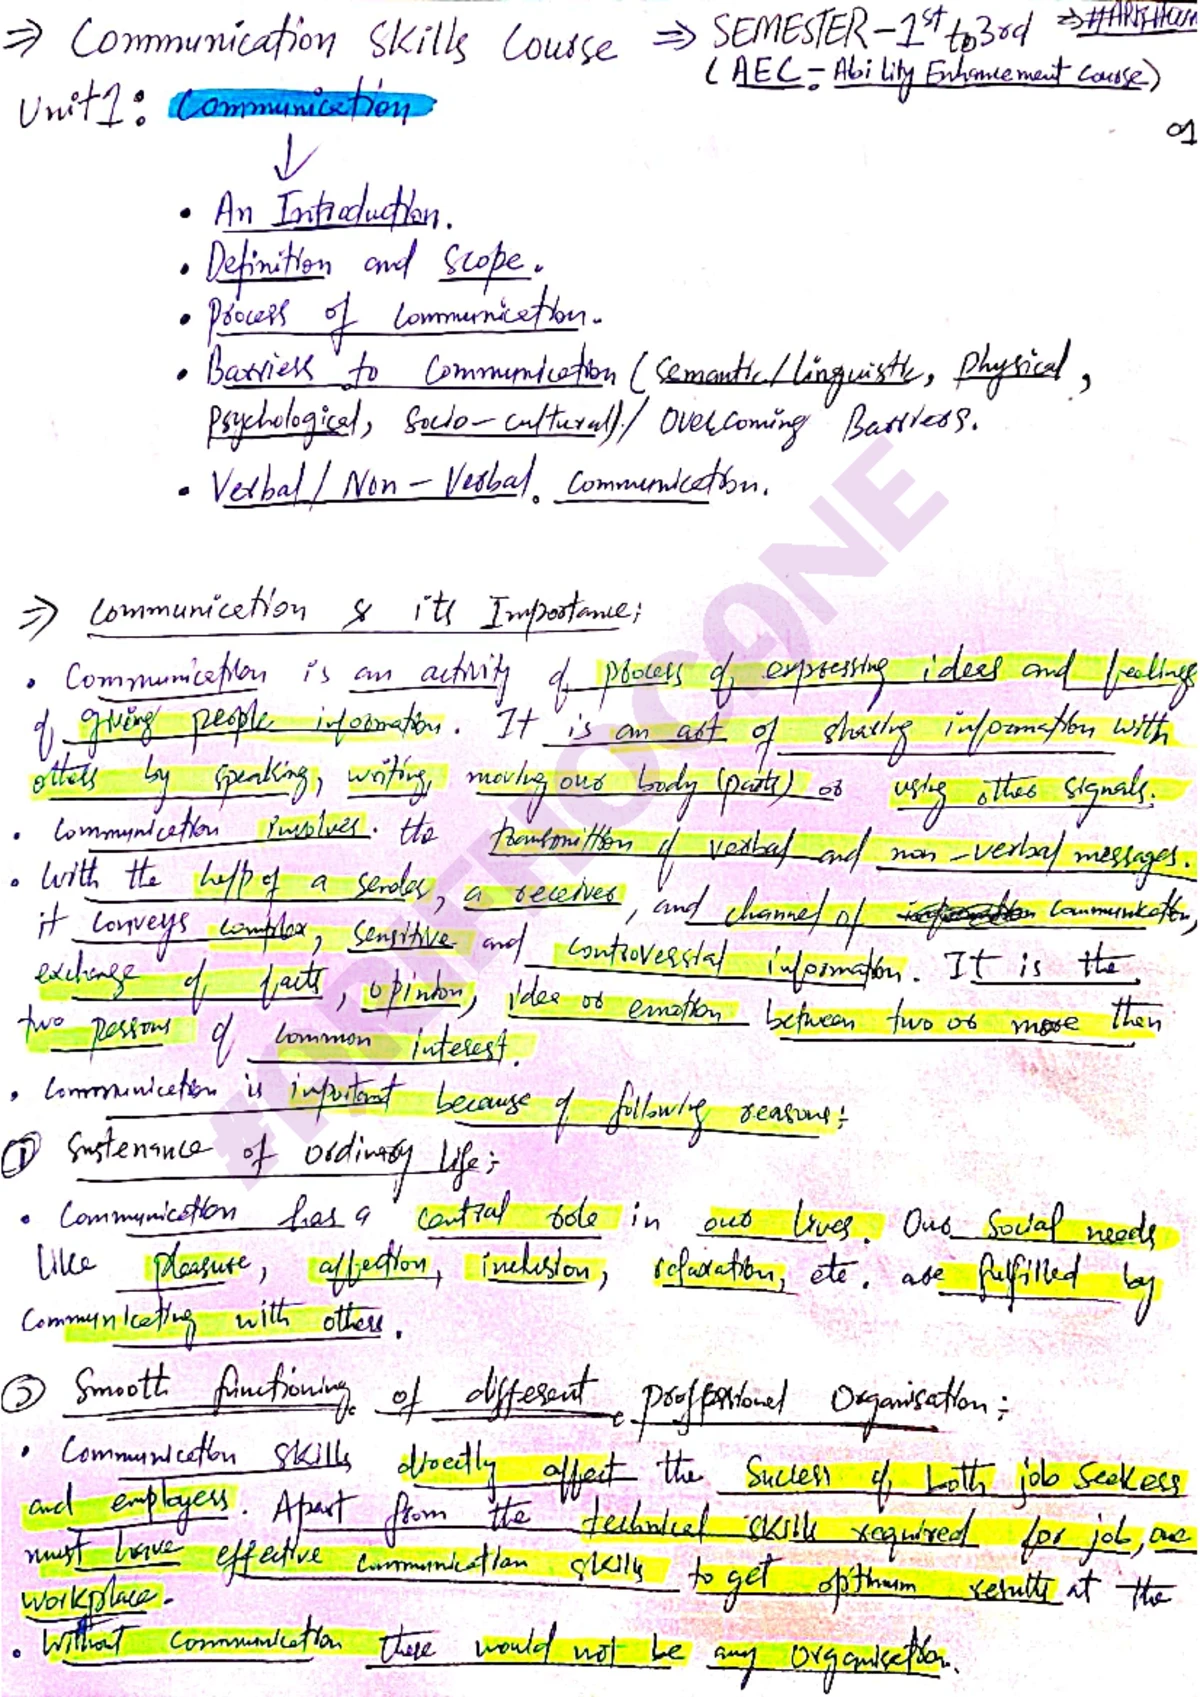 ⇒ Communication Skills Course ⇒ SEMESTER-1st to 3rd ⇒ #ARSHOUN
(AEC - Ability Enhancement Course)
Unit 1: Communication
01
• An Introduction.
• Definition and Scope.
• Process of Communication.
• Barriers to Communication (Semantic/Linguistic, Physical,
Psychological, Socio-cultural)/ Overcoming Barriers.
• Verbal/Non-Verbal. Communication.
⇒ Communication & its Importance:
• Communication is an activity of process of expressing ideas and feelings
of giving people information. It is an art of sharing information with
others by speaking, writing, moving our body (parts) or using other signals.
• Communication involves. the transmittion of verbal and non-verbal messages.
• With the help of a sender, a receiver, and channel of communication,
it conveys complex, sensitive and controversial information. It is the
exchange of facts, opinion, idea or emotion between two or more then
two persons of common interest.
• Communication is important because of following reasons:
① Sustenance of ordinary life:
• Communication has a central role in our lives. Our Social needs
like pleasure, affection, inclusion, relaxation, etc. are fulfilled by
communicating with others.
② Smooth functioning of different professional Organisation:
• Communication skills directly affect the Success of both job seekers
and employers. Apart from the technical skills required for job, one
must have effective communication skills to get optimum results at the
workplace.
• Without communication there would not be any Organisation.